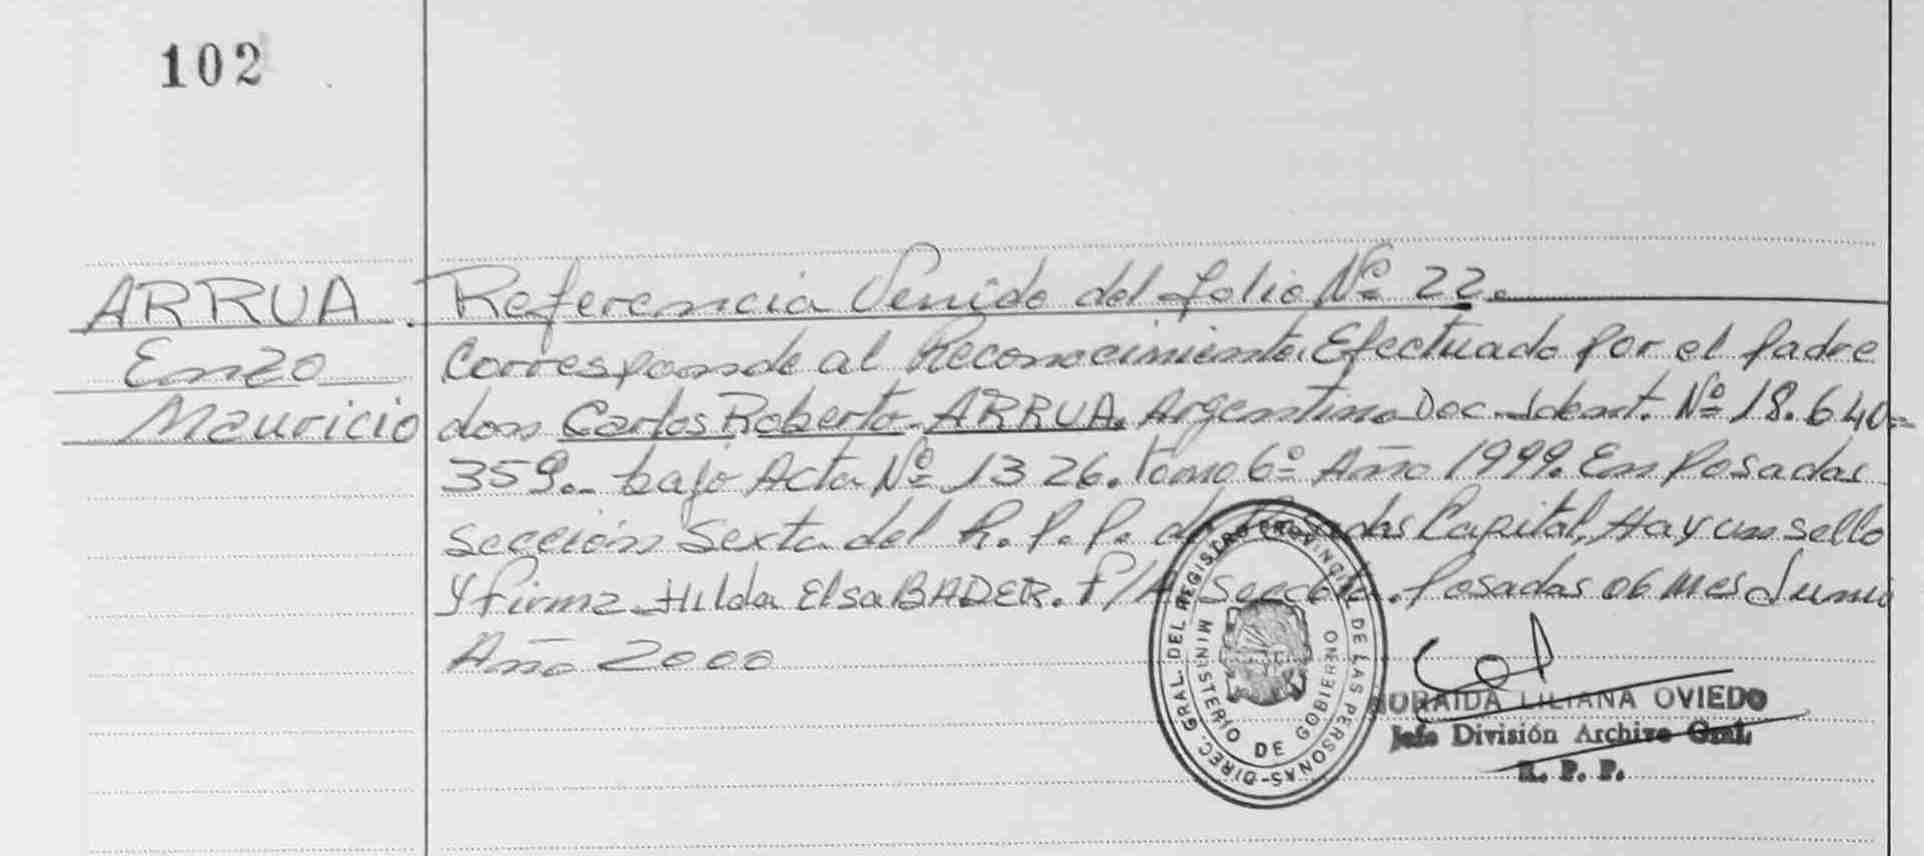 102
ARRUA
Enzo
Mauricio
Referencia Venido del folio Nº 22.
Corresponde al Reconocimiento Efectuado por el padre
don Carlos Roberto ARRUA. Argentino Doc. Ident. Nº 18.640=
359.- bajo Acta Nº 1326. tomo 6º Año 1999. En Posadas
sección Sexta del R.P.P. de Posadas Capital, Hay un sello
y firma Hilda Elsa BADER. P/A Sección. Posadas 06 mes Junio
Año 2000
DIREC GRAL. DEL REGISTRO PROVINCIAL DE LAS PERSONAS-
MINISTERIO DE GOBIERNO
LILIANA OVIEDO
Jefe División Archivo Gral.
R. P. P.